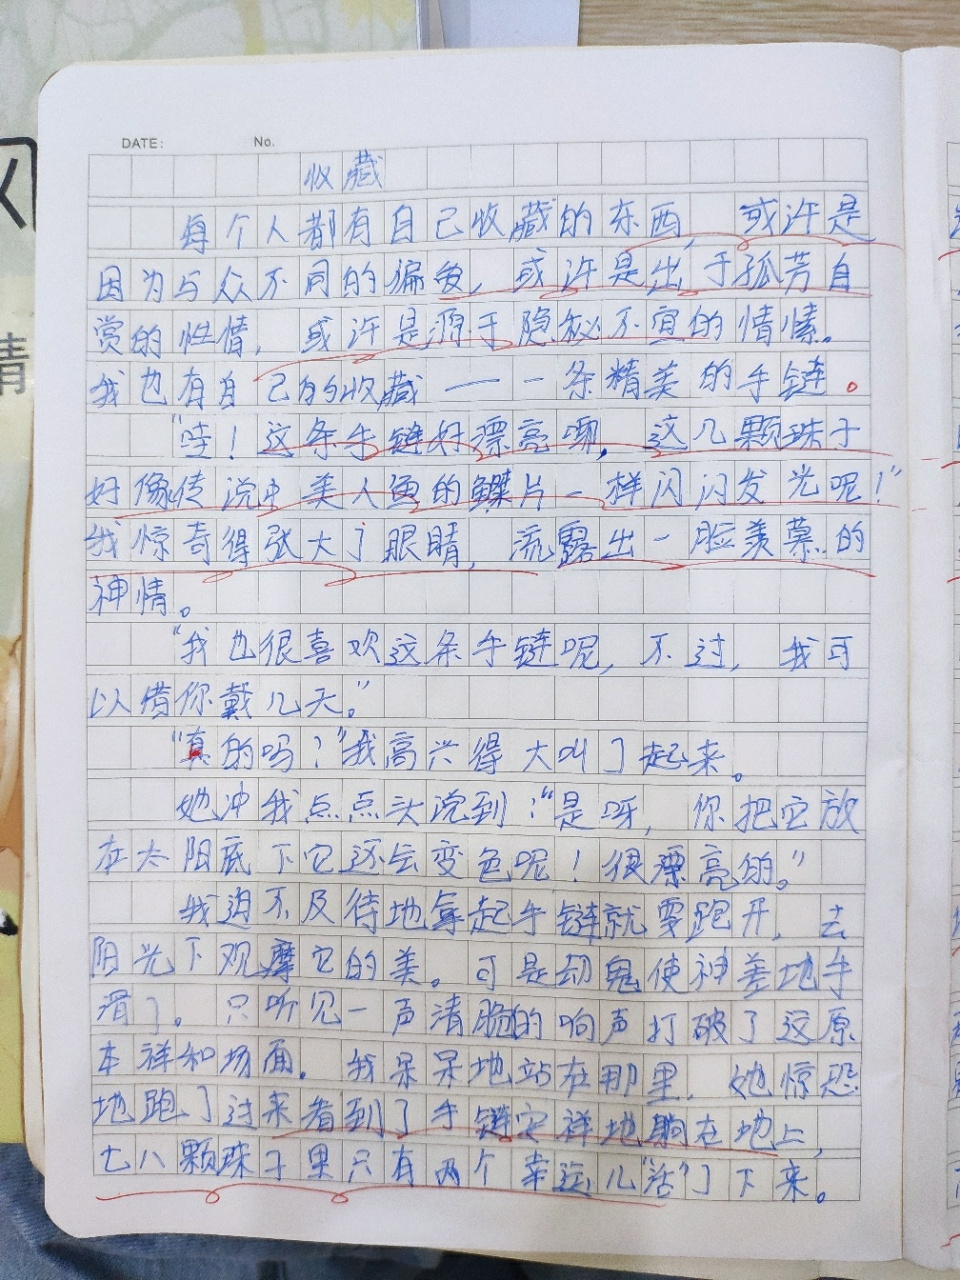 DATE: No.
收藏
每个人都有自己收藏的东西，或许是
因为与众不同的偏爱，或许是出于孤芳自
赏的性情，或许是源于隐秘不宣的情愫。
我也有自己的收藏——一条精美的手链。
“哇！这条手链好漂亮哪，这几颗珠子
好像传说中美人鱼的鳞片一样闪闪发光呢！”
我惊奇得张大了眼睛，流露出一脸羡慕的
神情。
“我也很喜欢这条手链呢，不过，我可
以借你戴几天。”
“真的吗？”我高兴得大叫了起来。
她冲我点点头说到：“是呀，你把它放
在太阳底下它还会变色呢！很漂亮的。”
我迫不及待地拿起手链就要跑开，去
阳光下观摩它的美。可是却鬼使神差地手
滑了。只听见一声清脆的响声打破了这原
本祥和场面。我呆呆地站在那里，她惊恐
地跑了过来看到了手链安祥地躺在地上，
七八颗珠子里只有两个幸运儿“活”了下来。
情